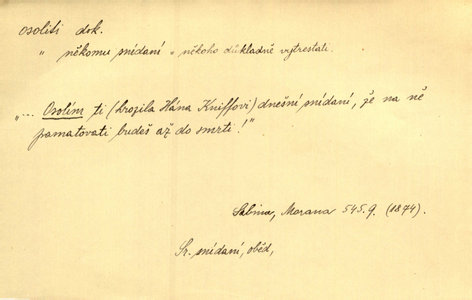 osoliti dok.
" někomu snídani = někoho důkladně vytrestati.
"... Osolím ti (hrozila Hána Kniffovi) dnešní snídani, že na ně
pamatovati budeš až do smrti!"
Sabina, Morana 545.9. (1874).
Sr. snídaní, oběd,